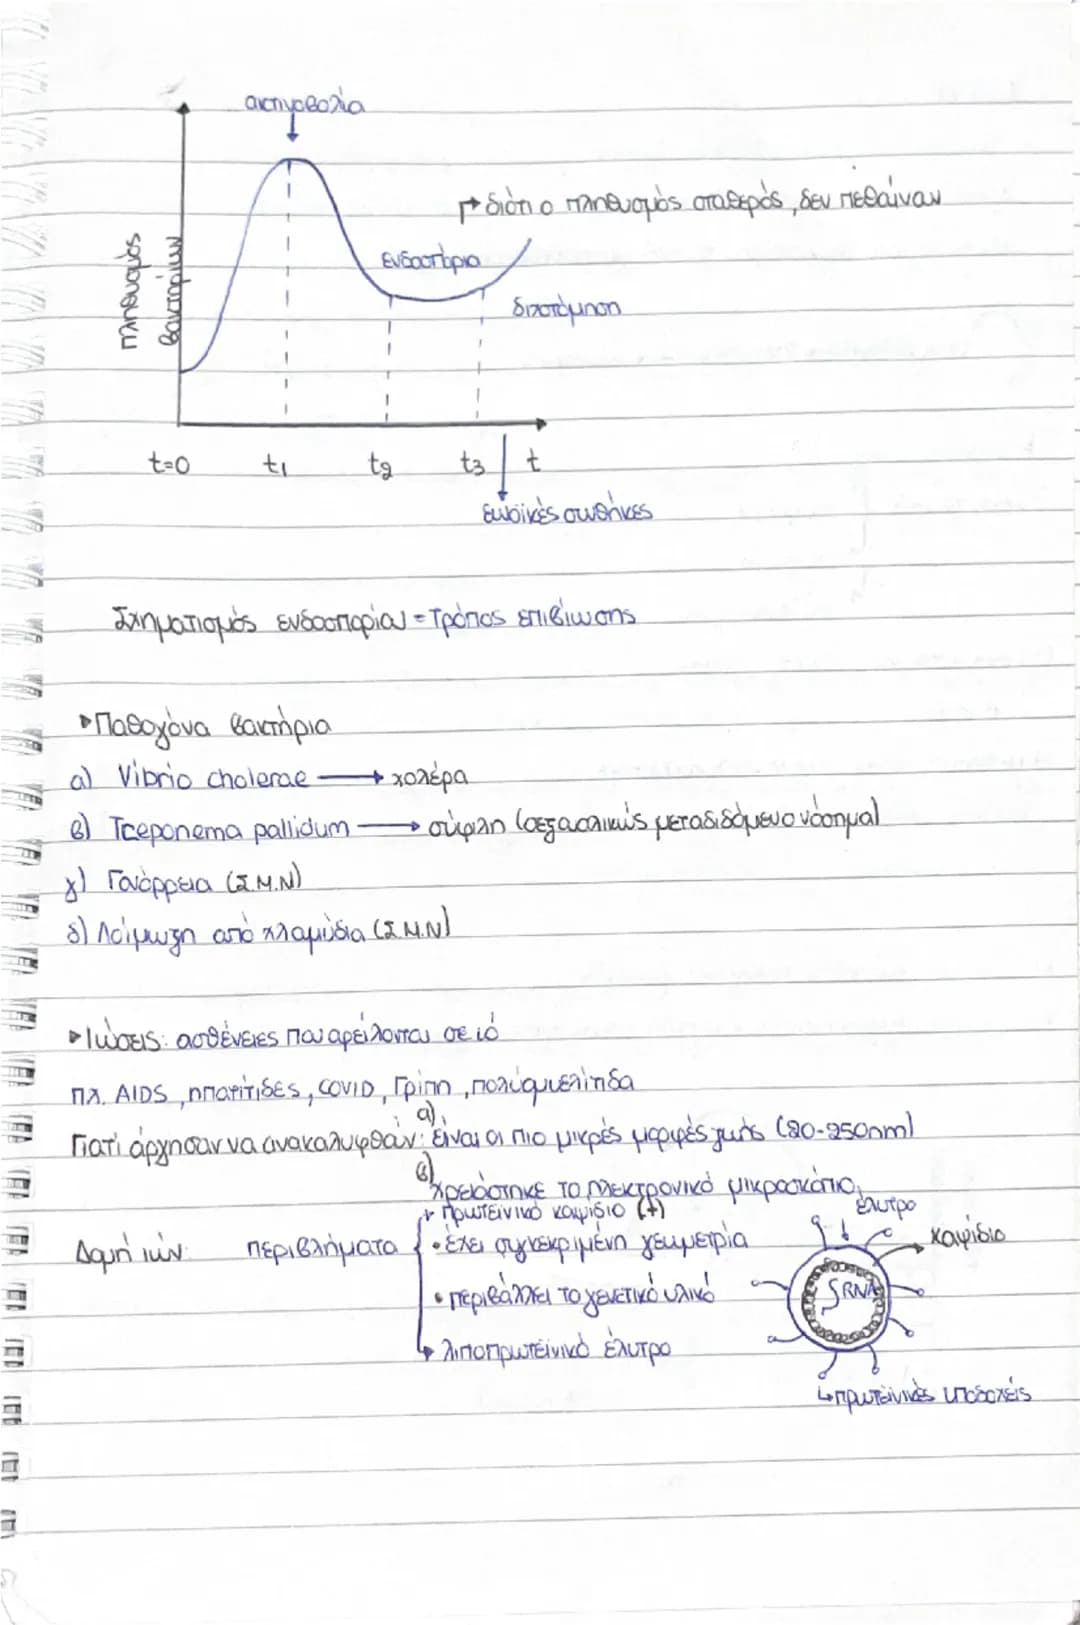 ακτινοβολία
διότι ο πληθυσμός σταθερός, δεν πεθαίναν
ενδοσπόρια
διχοτόμηση
πληθυσμός
βακτηρίων
t=0 t1 t2 t3 t
ευνοϊκές συνθήκες
Σχηματισμός ενδοσπορίου = Τρόπος επιβίωσης
Παθογόνα βακτήρια
α) Vibrio cholerae → χολέρα
β) Treponema pallidum → σύφιλη (σεξουαλικώς μεταδιδόμενο νόσημα)
γ) Γονόρροια (Σ.Μ.Ν)
δ) Λοίμωξη από χλαμύδια (Σ.Μ.Ν)
Ιώσεις: ασθένειες που οφείλονται σε ιό
πχ. AIDS, ηπατίτιδες, COVID, Γρίπη, πολυομυελίτιδα
Γιατί άργησαν να ανακαλυφθούν: α) Είναι οι πιο μικρές μορφές ζωής (20-250nm)
β) χρειάστηκε το ηλεκτρονικό μικροσκόπιο
Δομή ιών: περιβλήματα
πρωτεϊνικό καψίδιο (+)
• έχει συγκεκριμένη γεωμετρία
• περιβάλλει το γενετικό υλικό
λιποπρωτεϊνικό έλυτρο
έλυτρο
καψίδιο
RNA
πρωτεϊνικές υποδοχείς